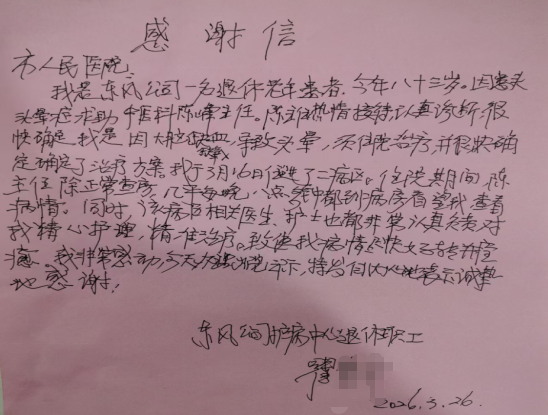 感谢信
市人民医院
我是东风公司一名退休老年患者，今年八十三岁。因患头
头晕症求助中医科陈峰主任。陈主任热情接待，认真诊断，很
快确定我是因大脑缺血，导致头晕，须住院治疗，并很快确
定确定了治疗方案。我于3月16日住进了二病区。住院期间，陈
主任除正常查房，几乎每晚八点钟都到病房看望我查看
病情。同时，该病区相关医生、护士也都非常认真负责对
我精心护理，精准治疗。致使我病情很快好转并痊
癒。我非常感动，今天出院示，特发自内心地表示诚挚
地感谢！
东风公司扩病中心退休职工
2026.3.26.